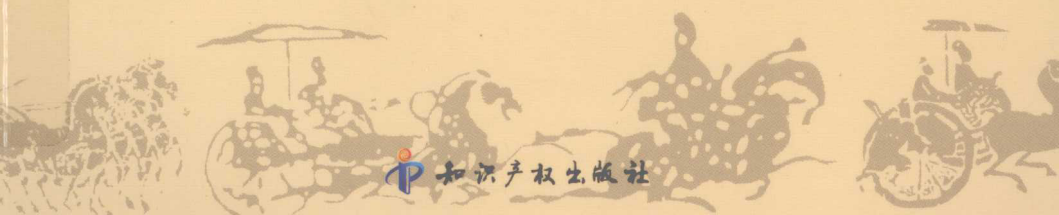 知识产权出版社